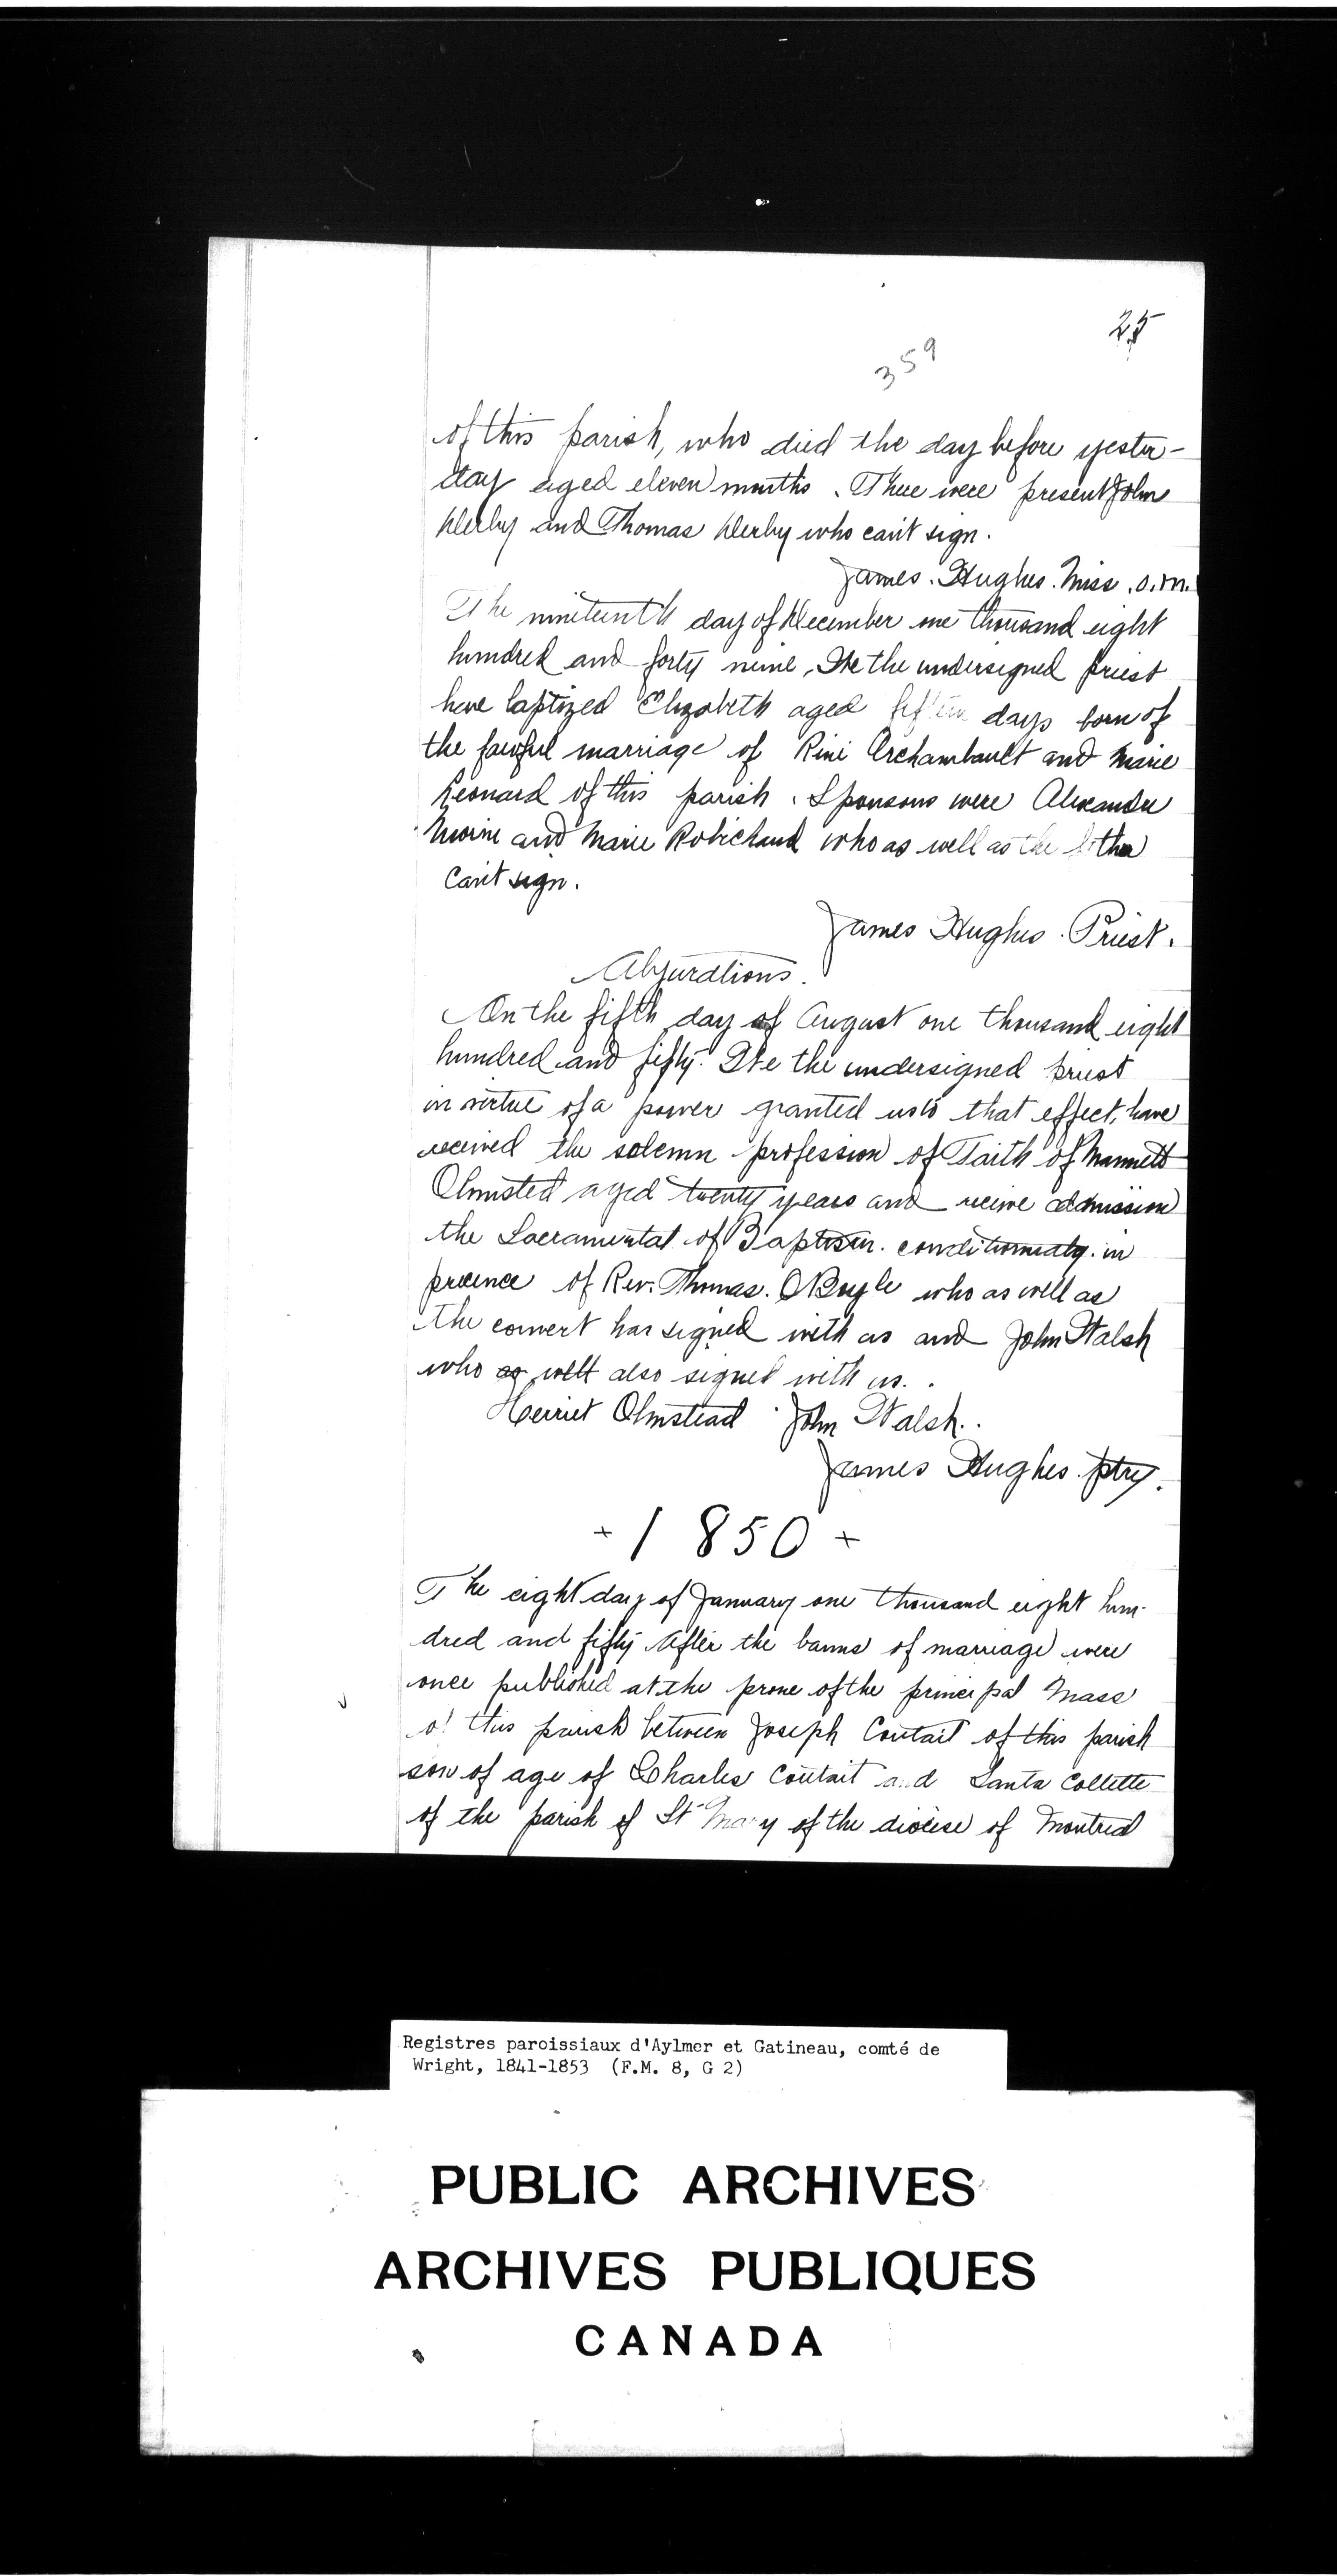 25
359
of this parish, who died the day before yester-
day aged eleven months. There were present John
Derby and Thomas Derby who can't sign.
James. Hughes. Miss. O.M.
The nineteenth day of December one thousand eight
hundred and forty nine, We the undersigned priest
have baptized Elizabeth aged fifteen days born of
the lawful marriage of Rini Archambault and Marie
Leonard of this parish. Sponsons were Alexandre
Morin and Marie Robichaud who as well as the
can't sign.
James Hughes. Priest.
Abjurations.
On the fifth day of August one thousand eight
hundred and fifty. We the undersigned priest
in virtue of a power granted us to that effect, have
received the solemn profession of Faith of
Olmsted aged twenty years and receive admission
the Sacramental of Baptism. conditionaly. in
presence of Rev. Thomas. O Boyle who as well as
the convert has signed with us and John Walsh
who as well also signed with us.
Herriet Olmstead John Walsh.
James Hughes. ptry.
+ 1850 +
The eight day of January one thousand eight hun-
dred and fifty After the banns of marriage were
once published at the prone of the principal Mass
of this parish between Joseph Coutait of this parish
son of age of Charles Coutait and Santa Collette
of the parish of St Mary of the diocese of Montreal
Registres paroissiaux d'Aylmer et Gatineau, comté de
Wright, 1841-1853 (F.M. 8, G 2)
PUBLIC ARCHIVES
ARCHIVES PUBLIQUES
CANADA